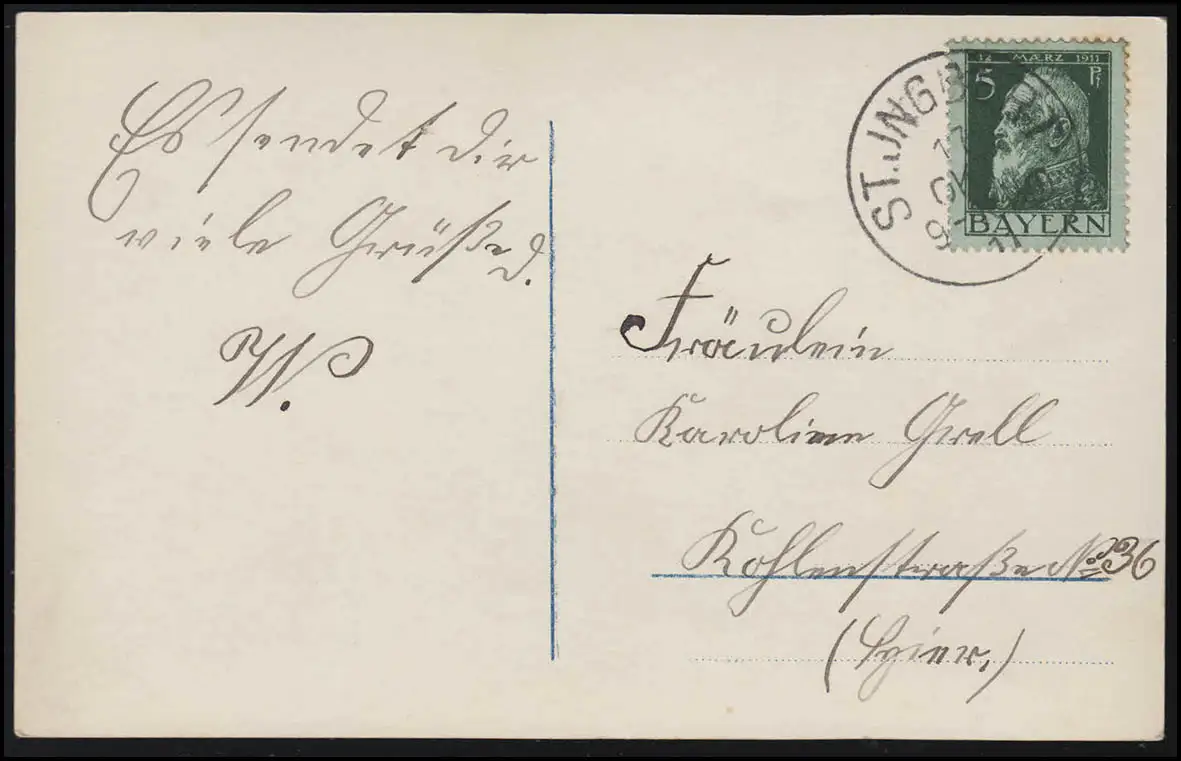 Es sendet dir
viele Grüße d.
W.
12 MÆRZ 1911
5 Pf
BAYERN
ST. INGB
Fräulein
Karoline Grell
Kohlenstraße No 36
(Hier.)